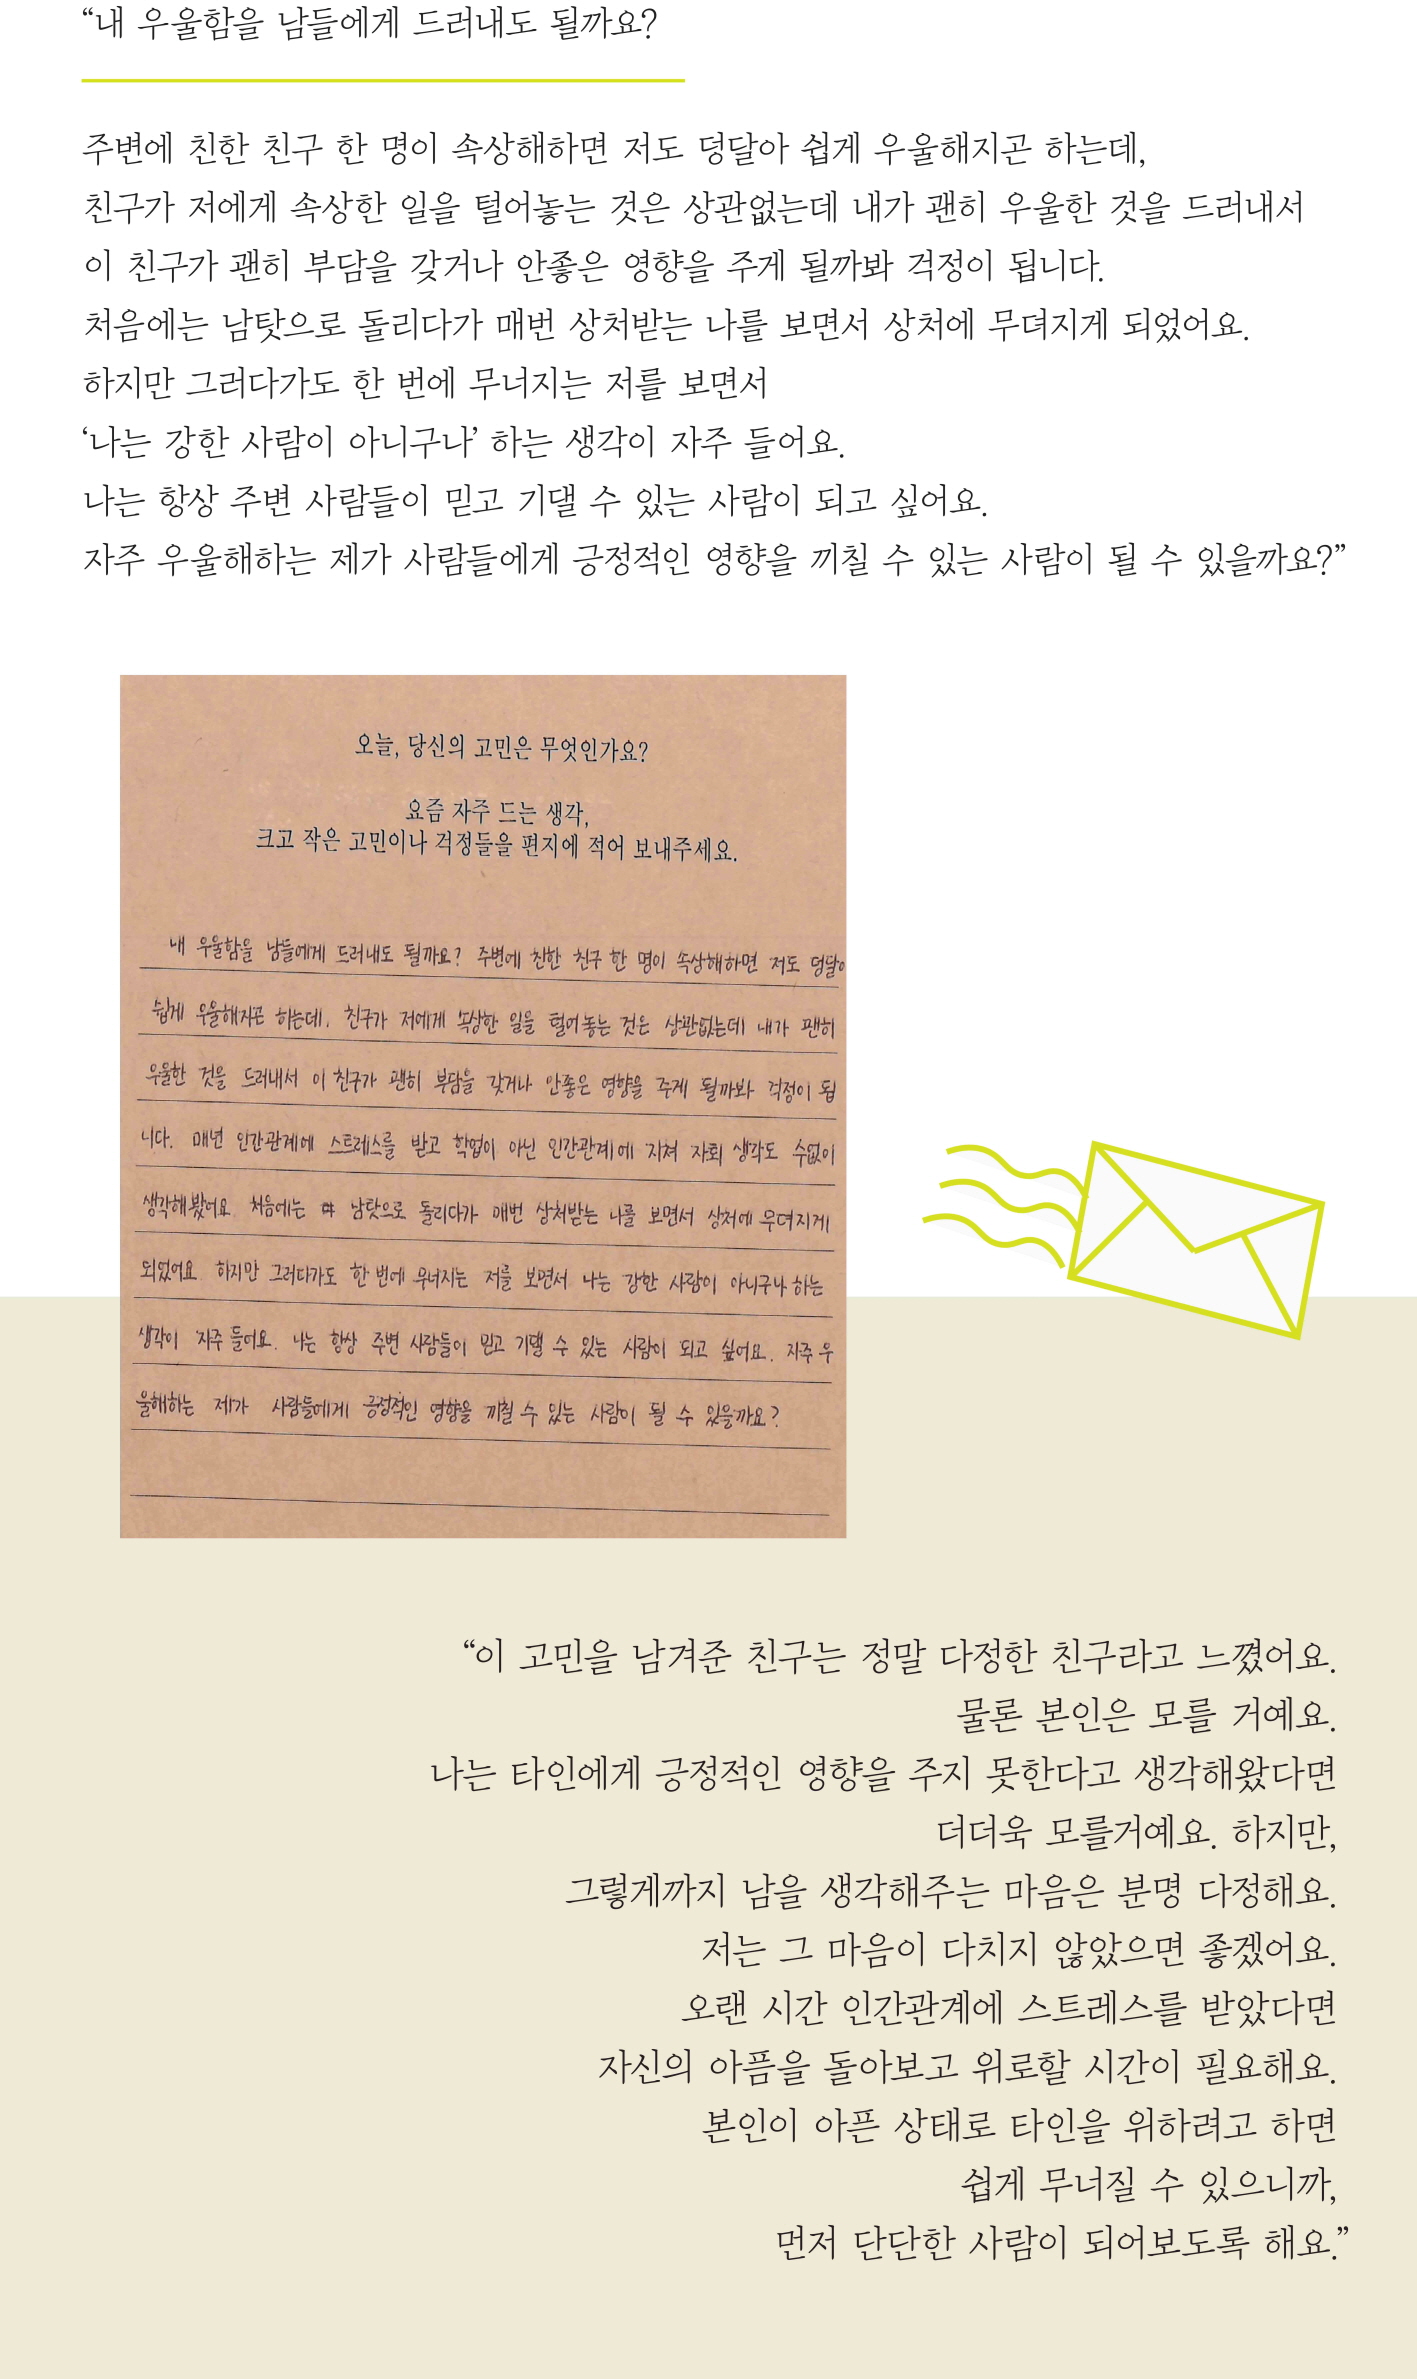 “내 우울함을 남들에게 드러내도 될까요?
주변에 친한 친구 한 명이 속상해하면 저도 덩달아 쉽게 우울해지곤 하는데,
친구가 저에게 속상한 일을 털어놓는 것은 상관없는데 내가 괜히 우울한 것을 드러내서
이 친구가 괜히 부담을 갖거나 안좋은 영향을 주게 될까봐 걱정이 됩니다.
처음에는 남탓으로 돌리다가 매번 상처받는 나를 보면서 상처에 무뎌지게 되었어요.
하지만 그러다가도 한 번에 무너지는 저를 보면서
‘나는 강한 사람이 아니구나’ 하는 생각이 자주 들어요.
나는 항상 주변 사람들이 믿고 기댈 수 있는 사람이 되고 싶어요.
자주 우울해하는 제가 사람들에게 긍정적인 영향을 끼칠 수 있는 사람이 될 수 있을까요?”
오늘, 당신의 고민은 무엇인가요?
요즘 자주 드는 생각,
크고 작은 고민이나 걱정들을 편지에 적어 보내주세요.
내 우울함을 남들에게 드러내도 될까요? 주변에 친한 친구 한 명이 속상해하면 저도 덩달아
쉽게 우울해지곤 하는데, 친구가 저에게 속상한 일을 털어놓는 것은 상관없는데 내가 괜히
우울한 것을 드러내서 이 친구가 괜히 부담을 갖거나 안좋은 영향을 주게 될까봐 걱정이 됩
니다. 매년 인간관계에 스트레스를 받고 학업이 아닌 인간관계에 지쳐 자퇴 생각도 수없이
생각해봤어요 처음에는 남탓으로 돌리다가 매번 상처받는 나를 보면서 상처에 무뎌지게
되었어요 하지만 그러다가도 한 번에 무너지는 저를 보면서 나는 강한 사람이 아니구나 하는
생각이 자주 들어요. 나는 항상 주변 사람들이 믿고 기댈 수 있는 사람이 되고 싶어요. 자주 우
울해하는 제가 사람들에게 긍정적인 영향을 끼칠 수 있는 사람이 될 수 있을까요?
“이 고민을 남겨준 친구는 정말 다정한 친구라고 느꼈어요.
물론 본인은 모를 거예요.
나는 타인에게 긍정적인 영향을 주지 못한다고 생각해왔다면
더더욱 모를거예요. 하지만,
그렇게까지 남을 생각해주는 마음은 분명 다정해요.
저는 그 마음이 다치지 않았으면 좋겠어요.
오랜 시간 인간관계에 스트레스를 받았다면
자신의 아픔을 돌아보고 위로할 시간이 필요해요.
본인이 아픈 상태로 타인을 위하려고 하면
쉽게 무너질 수 있으니까,
먼저 단단한 사람이 되어보도록 해요.”